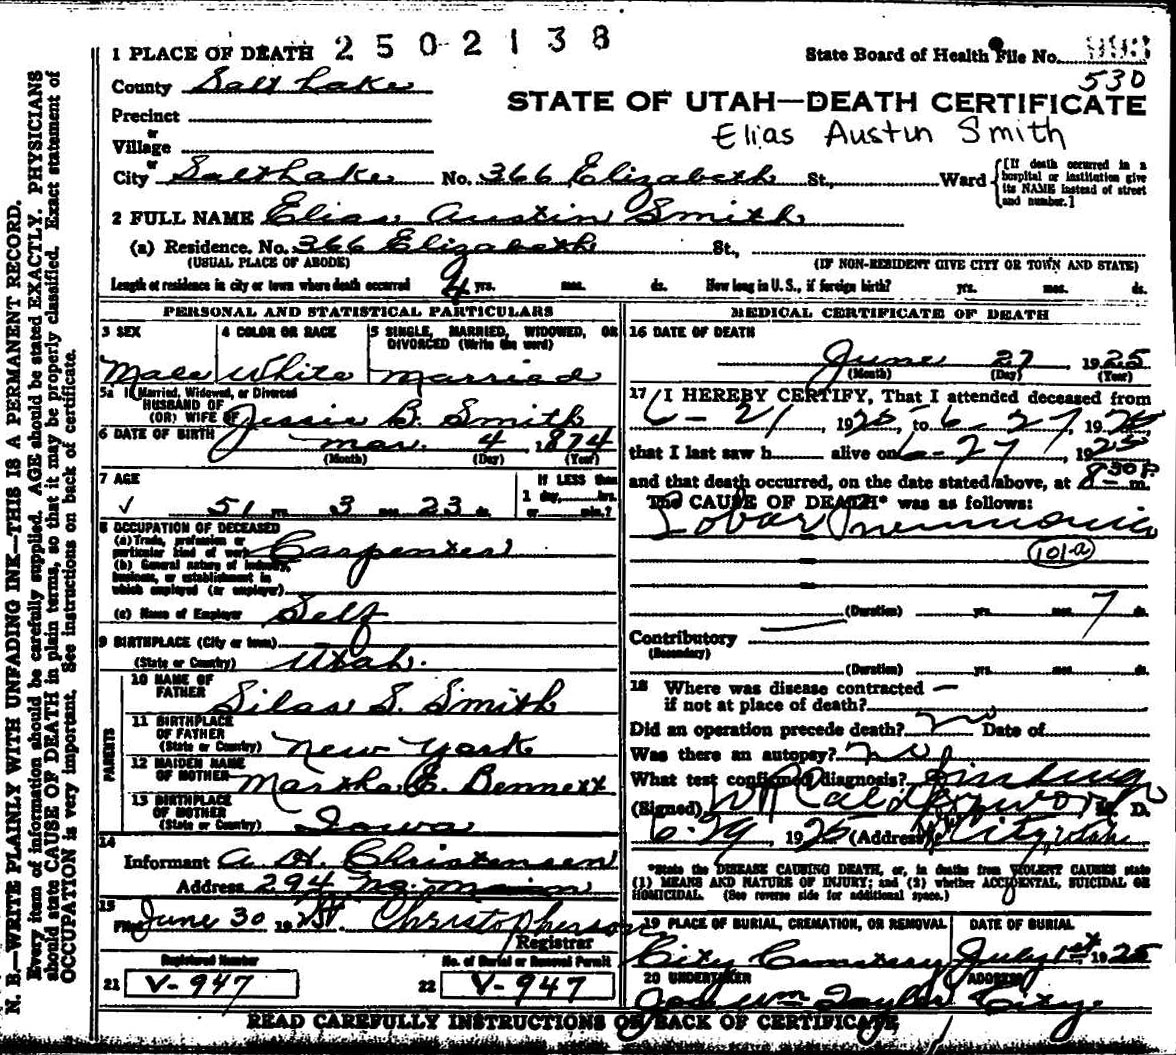 1 PLACE OF DEATH 2 5 0 2 1 3 8
State Board of Health File No.
County Salt Lake
530
STATE OF UTAH—DEATH CERTIFICATE
Precinct
Elias Austin Smith
or
Village
or
City Salt Lake No. 366 Elizabeth St., Ward
[If death occurred in a hospital or institution give its NAME instead of street and number.]
2 FULL NAME Elias Austin Smith
(a) Residence. No. 366 Elizabeth St.,
(USUAL PLACE OF ABODE) (IF NON-RESIDENT GIVE CITY OR TOWN AND STATE)
Length of residence in city or town where death occurred 4 yrs. mos. ds. How long in U. S., if foreign birth? yrs. mos. ds.
PERSONAL AND STATISTICAL PARTICULARS
3 SEX 4 COLOR OR RACE 5 SINGLE, MARRIED, WIDOWED, OR
DIVORCED (Write the word)
Male White Married
5a If Married, Widowed, or Divorced
HUSBAND OF
(OR) WIFE OF Jessie B. Smith
6 DATE OF BIRTH Mar. 4 1874
(Month) (Day) (Year)
7 AGE If LESS than
1 day, hrs.
51 yrs. 3 mos. 23 ds. or min.?
8 OCCUPATION OF DECEASED
(a) Trade, profession or
particular kind of work Carpenter
(b) General nature of industry,
business, or establishment in
which employed (or employer)
(c) Name of Employer Self
9 BIRTHPLACE (City or town)
(State or Country) Utah.
PARENTS
10 NAME OF
FATHER Silas S. Smith
11 BIRTHPLACE
OF FATHER
(State or Country) New York
12 MAIDEN NAME
OF MOTHER Martha E. Bennett
13 BIRTHPLACE
OF MOTHER
(State or Country) Iowa
14
Informant A. H. Christensen
Address 294 No. Main
15
June 30 Christopherson
Registrar
Registered Number No. of Burial or Removal Permit
21 V-947 22 V-947
MEDICAL CERTIFICATE OF DEATH
16 DATE OF DEATH
June 27, 1925
(Month) (Day) (Year)
17 I HEREBY CERTIFY, That I attended deceased from
6-21, 1925, to 6-27, 1925
that I last saw h alive on 6-27, 1925
and that death occurred, on the date stated above, at 8-30 P. m.
The CAUSE OF DEATH* was as follows:
Lobar Pneumonia
101-a
(Duration) yrs. mos. 7 ds.
Contributory
(Secondary)
(Duration) yrs. mos. ds.
18 Where was disease contracted —
if not at place of death?
Did an operation precede death? no Date of
Was there an autopsy? no
What test confirmed diagnosis?
(Signed) M. D.
6-29 1925 (Address) City, Utah
*State the DISEASE CAUSING DEATH, or, in deaths from VIOLENT CAUSES state
(1) MEANS AND NATURE OF INJURY; and (2) whether ACCIDENTAL, SUICIDAL OR
HOMICIDAL. (See reverse side for additional space.)
19 PLACE OF BURIAL, CREMATION, OR REMOVAL DATE OF BURIAL
City Cemetery July 1st 1925
20 UNDERTAKER ADDRESS
Jos. Wm Taylor City
READ CAREFULLY INSTRUCTIONS ON BACK OF CERTIFICATE
N. B.—WRITE PLAINLY WITH UNFADING INK—THIS IS A PERMANENT RECORD.
Every item of information should be carefully supplied. AGE should be stated EXACTLY. PHYSICIANS
should state CAUSE OF DEATH in plain terms, so that it may be properly classified. Exact statement of
OCCUPATION is very important. See instructions on back of certificate.